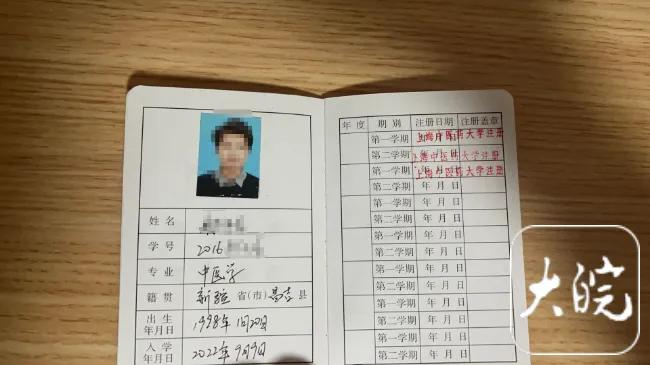 姓名
学号 2016
专业 中医学
籍贯 新疆 省(市) 昌吉 县
出生年月日 1998年1月20日
入学年月日 2022年9月9日
年度 期别 注册日期 注册盖章
第一学期 年月日 上海中医药大学注册
第二学期 年月日 上海中医药大学注册
第一学期 年月日 上海中医药大学注册
第二学期 年月日
第一学期 年月日
第二学期 年月日
第一学期 年月日
第二学期 年月日
第一学期 年月日
第二学期 年月日
第一学期 年月日
第二学期 年月日
大皖